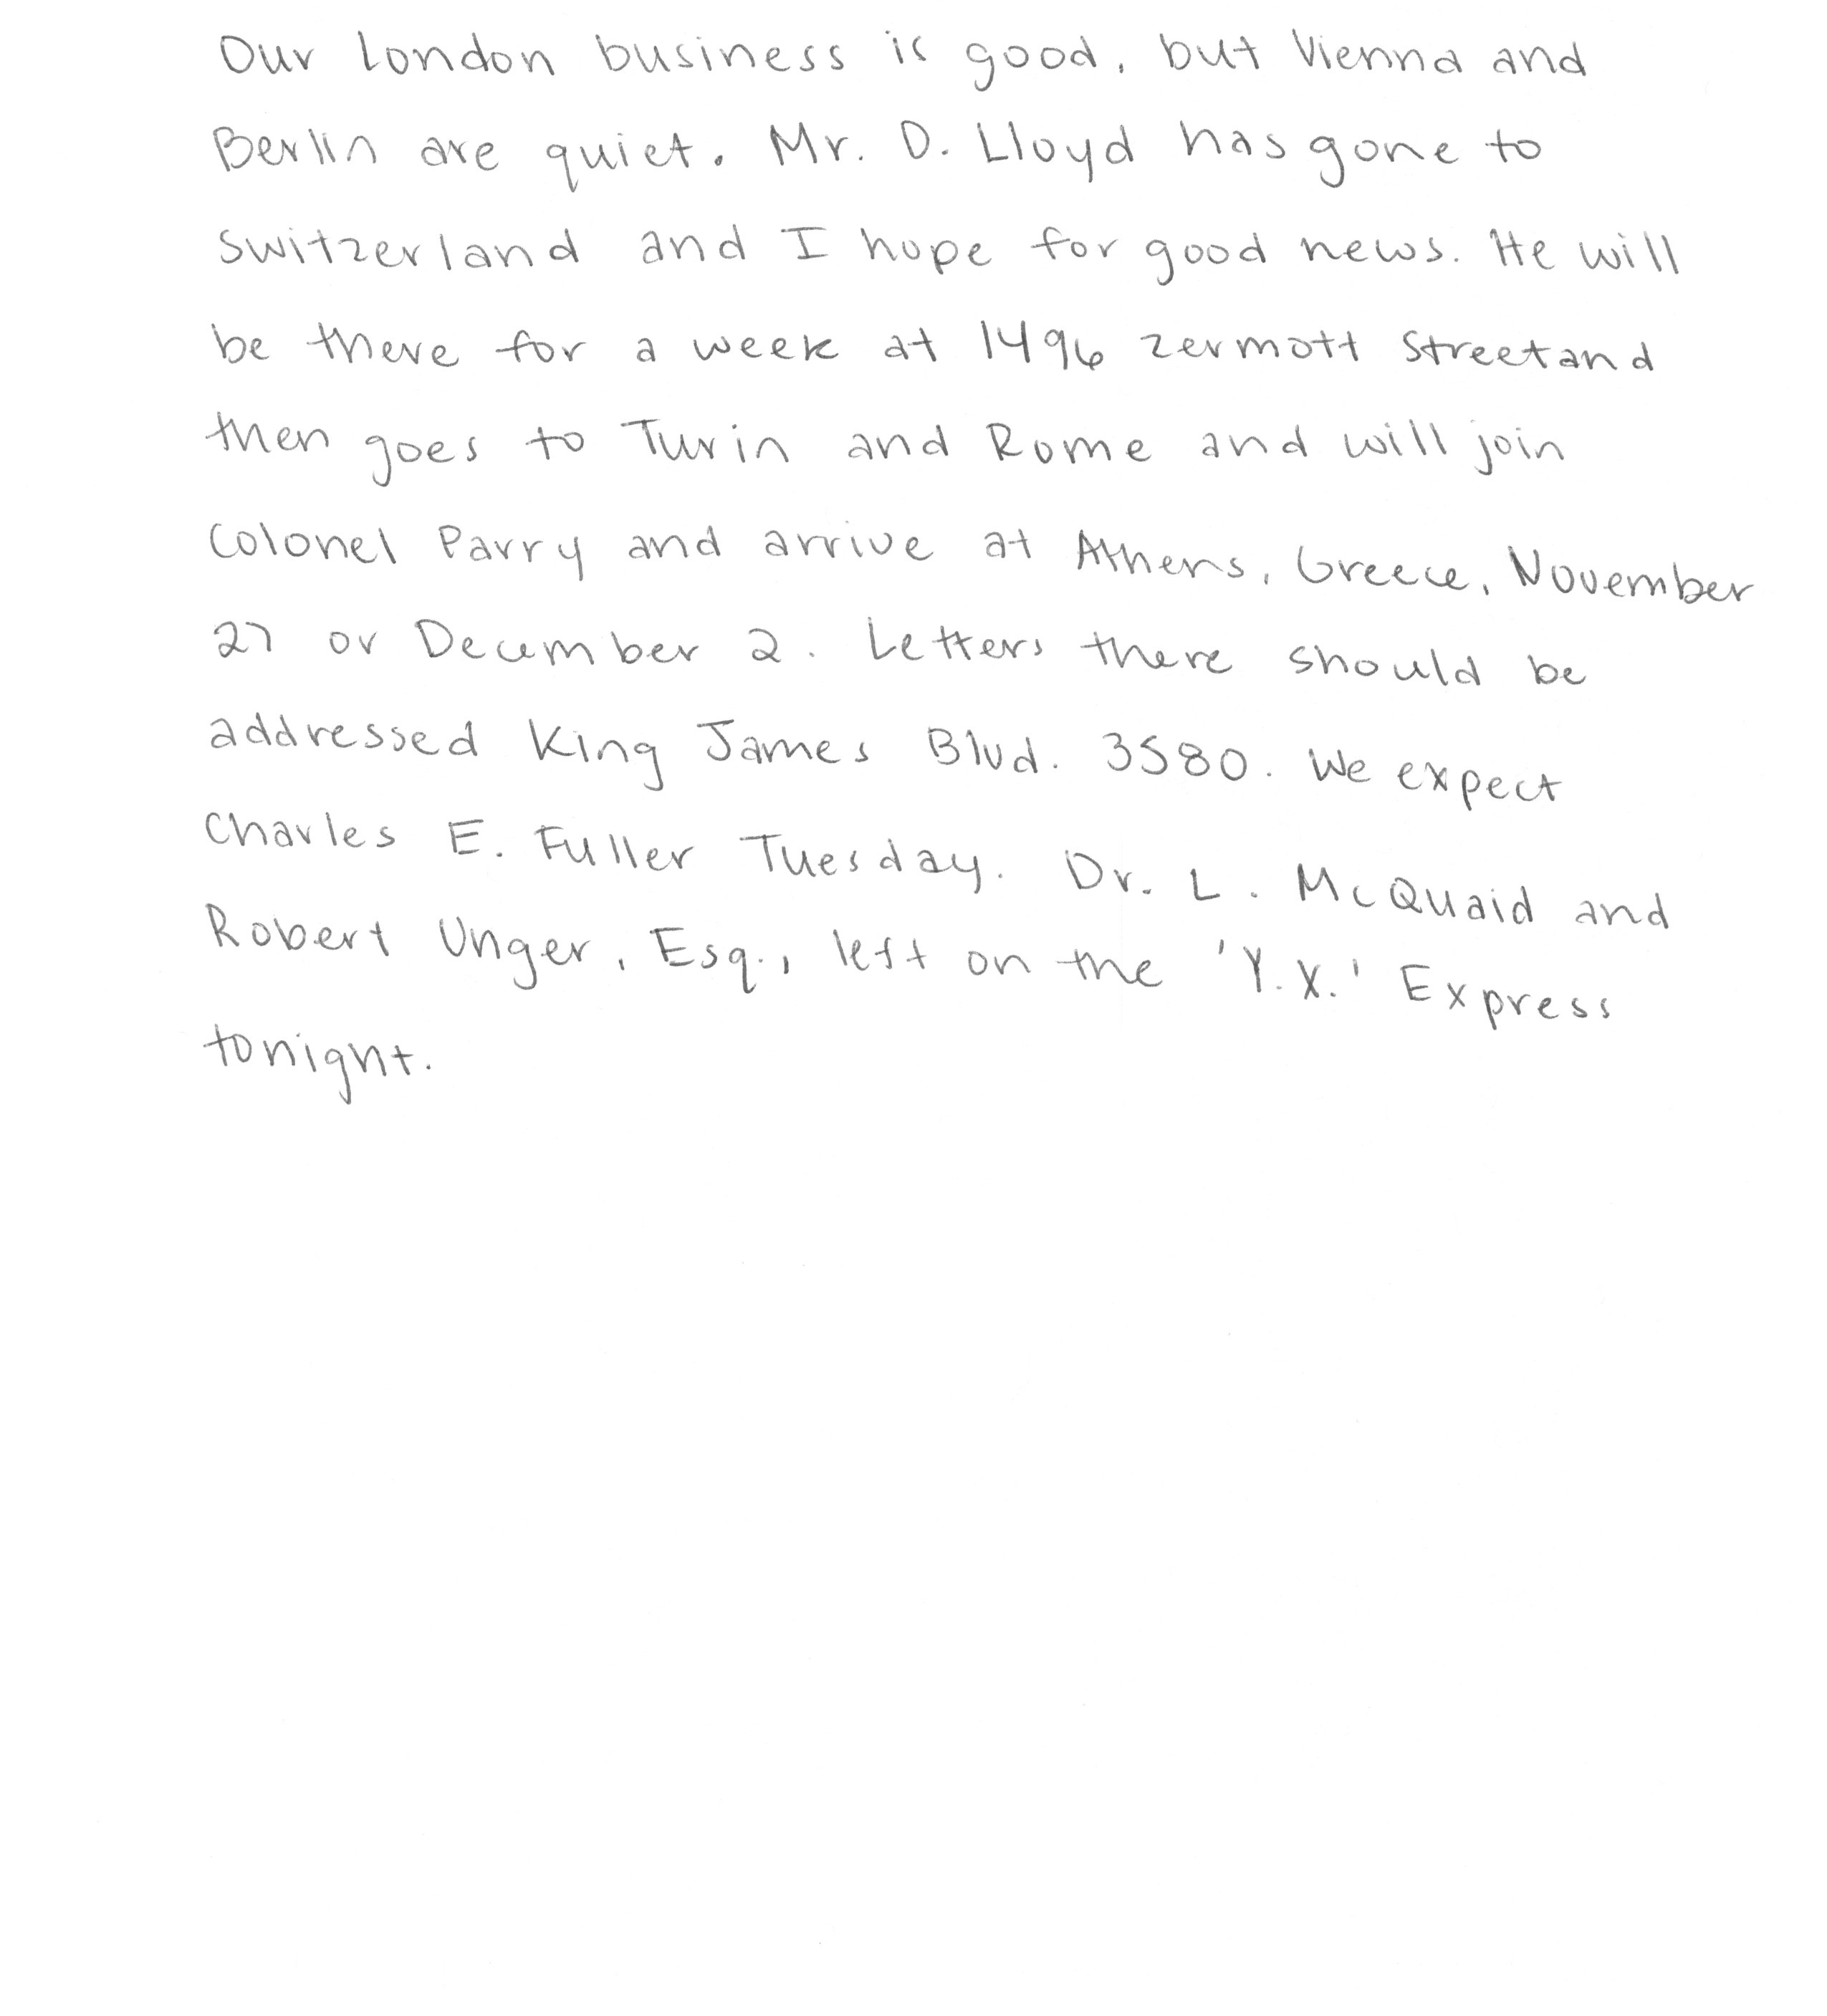 Our London business is good, but Vienna and
Berlin are quiet. Mr. D. Lloyd has gone to
Switzerland and I hope for good news. He will
be there for a week at 1496 Zermott Street and
then goes to Turin and Rome and will join
Colonel Parry and arrive at Athens, Greece, November
27 or December 2. Letters there should be
addressed King James Blvd. 3580. We expect
Charles E. Fuller Tuesday. Dr. L. McQuaid and
Robert Unger, Esq., left on the 'Y.X.' Express
tonight.